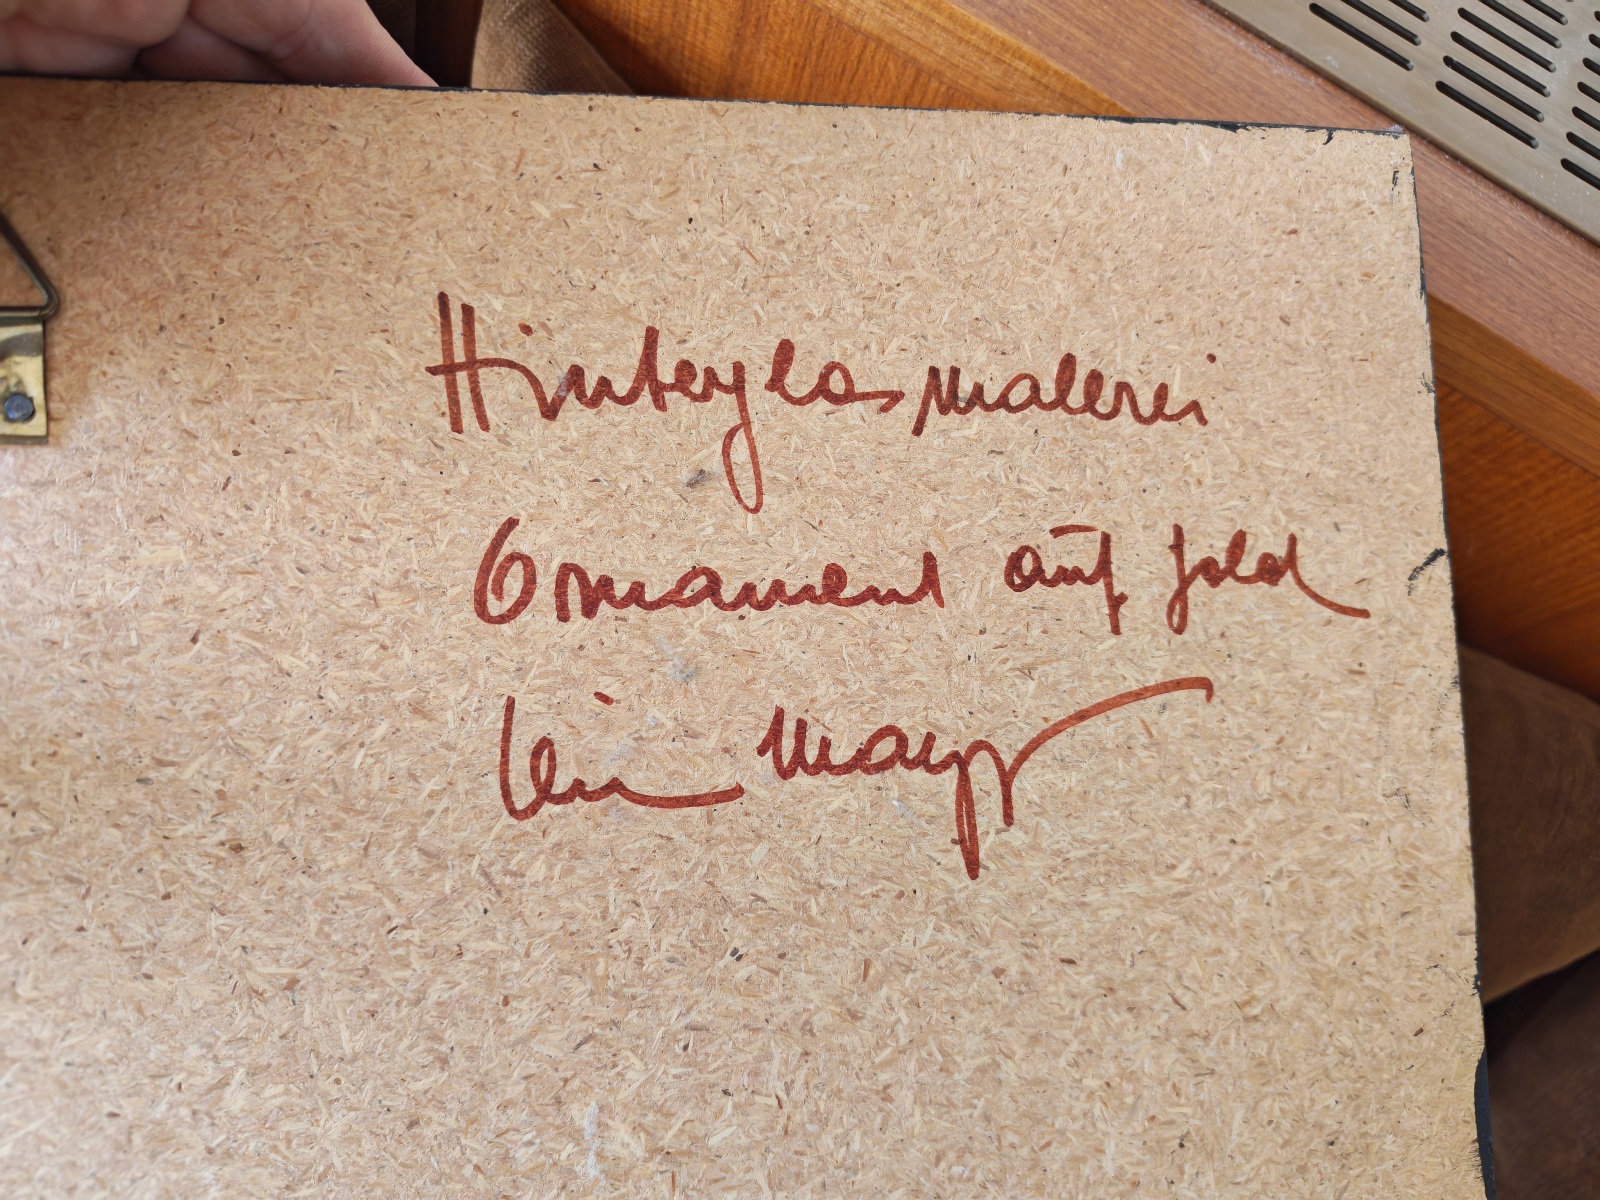 Hinterglasmalerei
Ornament auf Gold
Mayr